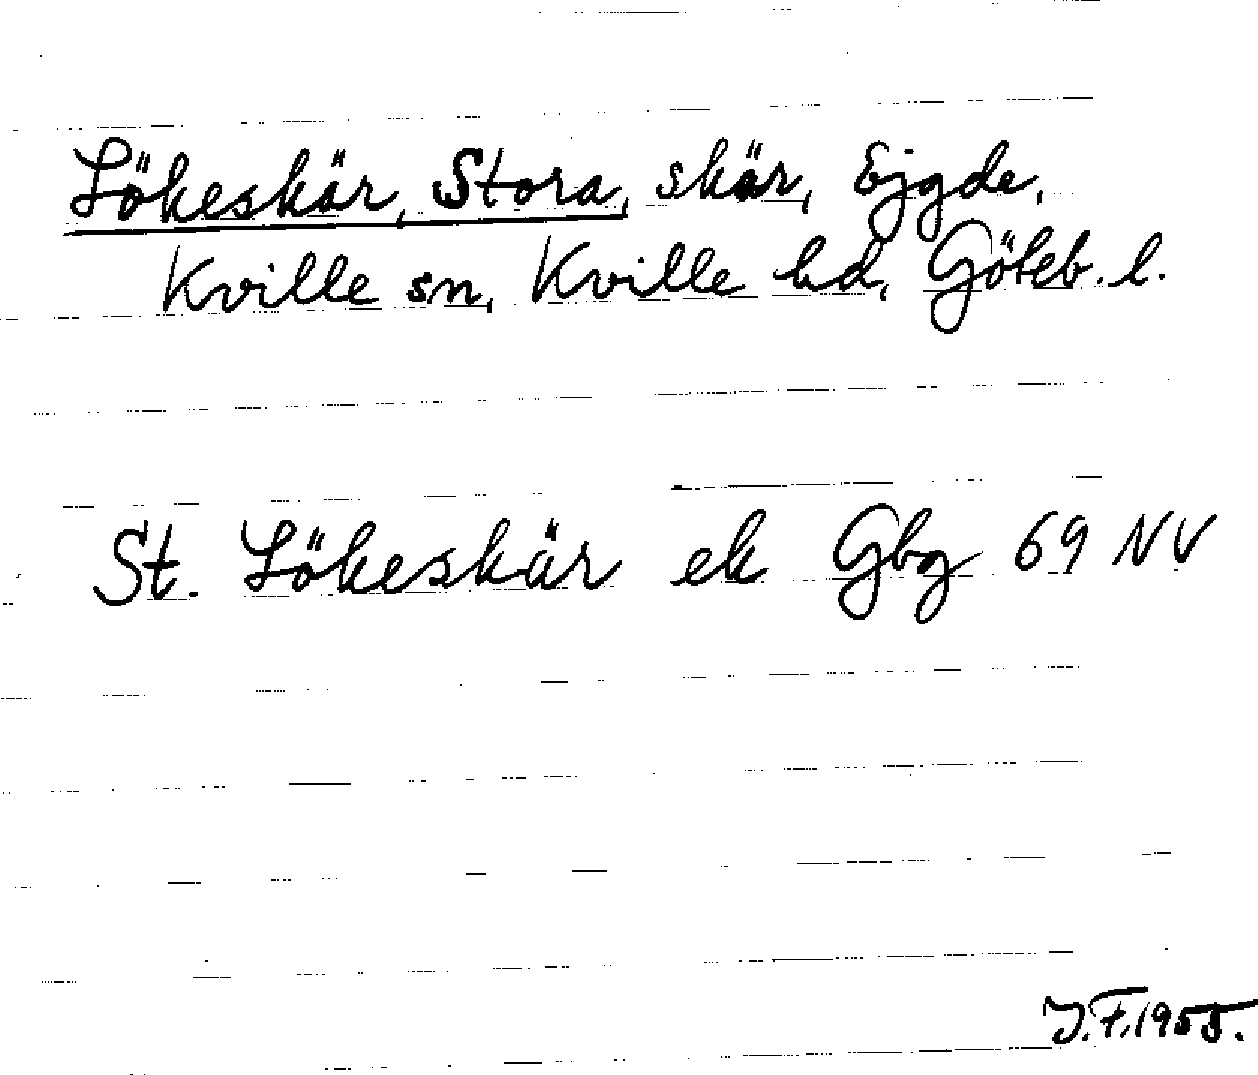 Lökeskär, Stora, skär, Ejgde,
Kville sn, Kville hd, Göteb. l.
St. Lökeskär ek Gbg 69 NV
J.F. 1955.